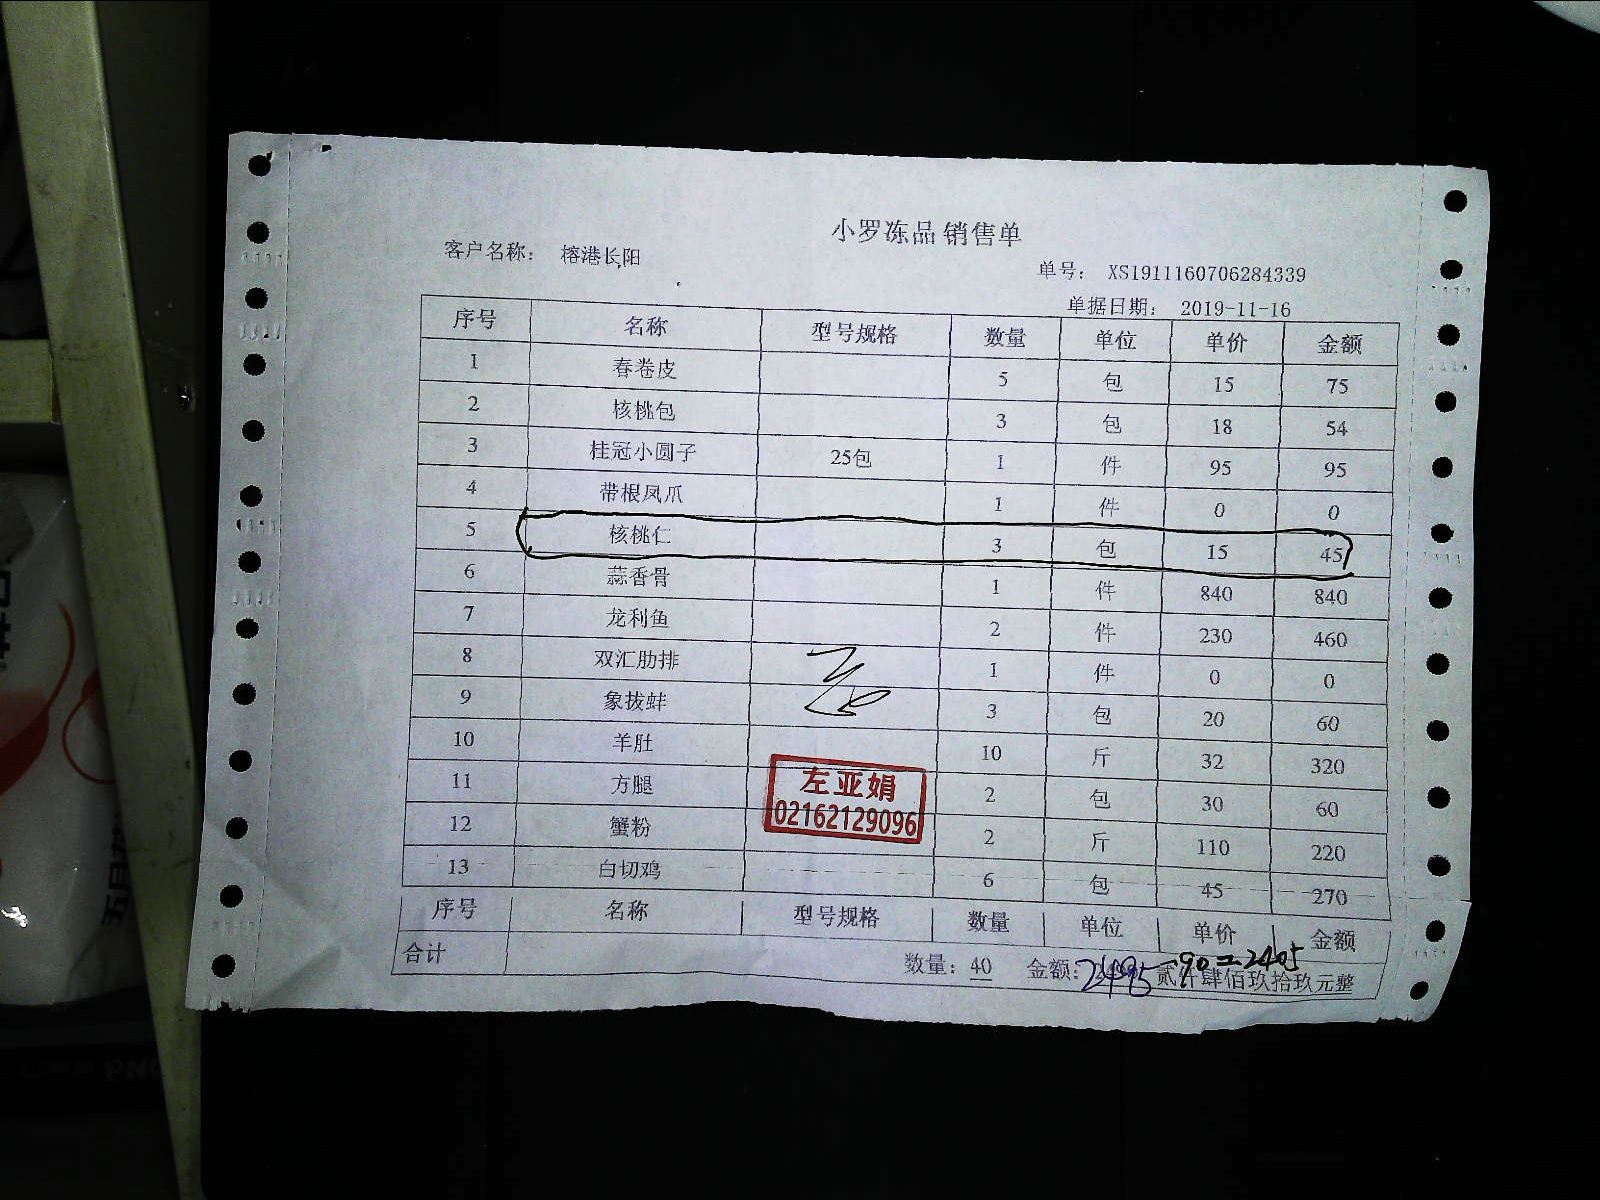 小罗冻品 销售单
客户名称： 榕港长阳
单号： XS1911160706284339
单据日期： 2019-11-16
序号 名称 型号规格 数量 单位 单价 金额
1 春卷皮 5 包 15 75
2 核桃包 3 包 18 54
3 桂冠小圆子 25包 1 件 95 95
4 带根凤爪 1 件 0 0
5 核桃仁 3 包 15 45
6 蒜香骨 1 件 840 840
7 龙利鱼 2 件 230 460
8 双汇肋排 1 件 0 0
9 象拔蚌 3 包 20 60
10 羊肚 10 斤 32 320
11 方腿 2 包 30 60
12 蟹粉 2 斤 110 220
13 白切鸡 6 包 45 270
左亚娟
02162129096
序号 名称 型号规格 数量 单位 单价 金额
合计 数量：40 金额：2495-90=2405 贰仟肆佰玖拾玖元整